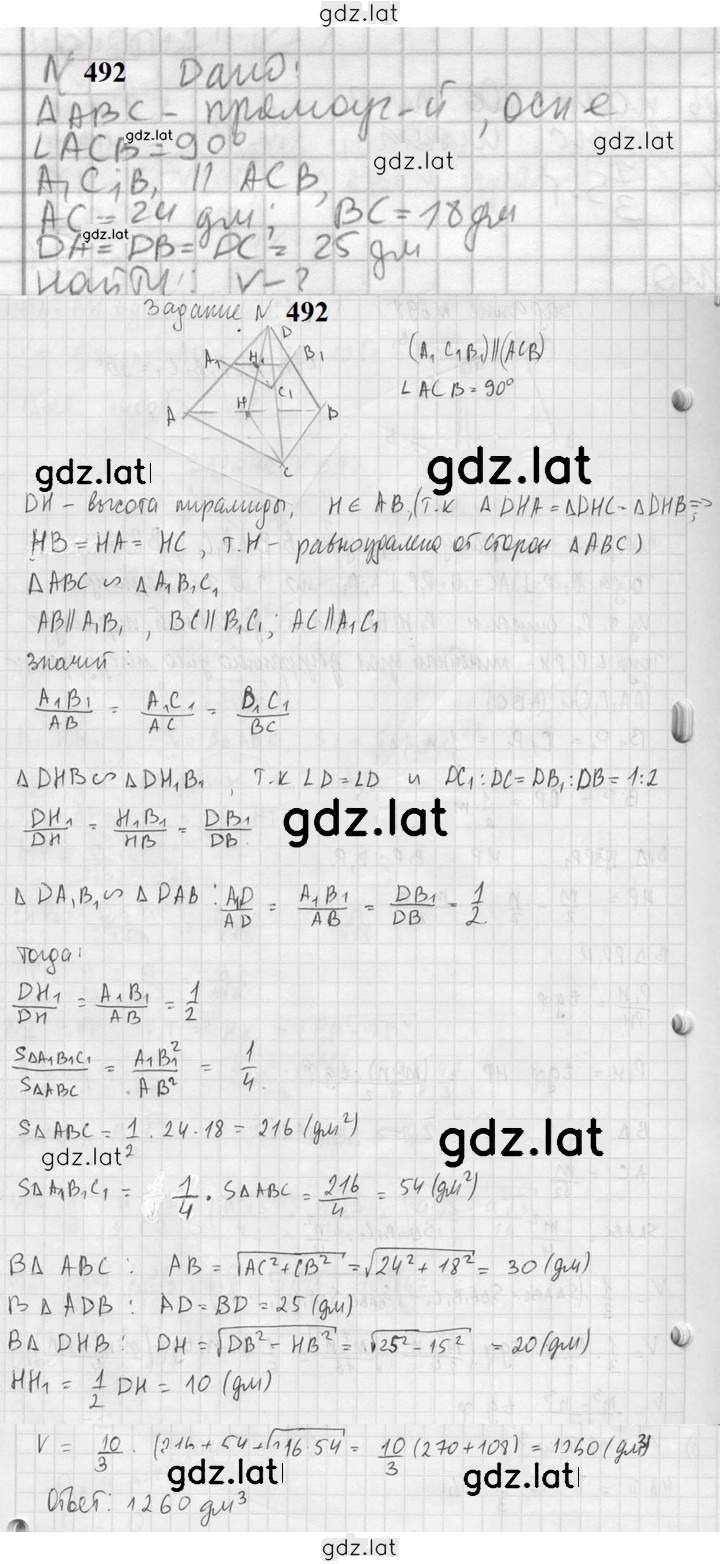 gdz.lat
№ 492 Дано:
△ABC - прямоуг-й, осн-е
∠ACB = 90° gdz.lat gdz.lat gdz.lat
A₁C₁B₁ || ACB,
AC = 24 дм; BC = 18 дм
gdz.lat
DA = DB = DC = 25 дм
Найти: V-?
Задание № 492
D
A₁ H₁ B₁ (A₁C₁B₁)||(ACB)
C₁ ∠ACB = 90°
A H B
C
gdz.lat gdz.lat
DH - высота пирамиды, H ∈ AB, (т.к △DHA = △DHC = △DHB ⇒
HB = HA = HC, т.H - равноудалена от сторон △ABC)
△ABC ∽ △A₁B₁C₁
AB||A₁B₁, BC||B₁C₁; AC||A₁C₁
значит:
A₁B₁/AB = A₁C₁/AC = B₁C₁/BC
△DHB ∽ △DH₁B₁, т.к ∠D = ∠D и DC₁:DC = DB₁:DB = 1:2
DH₁/DH = H₁B₁/HB = DB₁/DB gdz.lat
△DA₁B₁ ∽ △DAB: A₁D/AD = A₁B₁/AB = DB₁/DB = 1/2
тогда:
DH₁/DH = A₁B₁/AB = 1/2
S△A₁B₁C₁/S△ABC = A₁B₁²/AB² = 1/4
S△ABC = 1/2 · 24 · 18 = 216 (дм²) gdz.lat
gdz.lat
S△A₁B₁C₁ = 1/4 · S△ABC = 216/4 = 54 (дм²)
В△ ABC: AB = √AC² + CB² = √24² + 18² = 30 (дм)
В△ ADB: AD = BD = 25 (дм)
В△ DHB: DH = √DB² - HB² = √25² - 15² = 20 (дм)
HH₁ = 1/2 DH = 10 (дм)
V = 10/3 · (216 + 54 + √216·54 = 10/3 (270 + 108) = 1260 (дм³)
gdz.lat gdz.lat
Ответ: 1260 дм³
gdz.lat